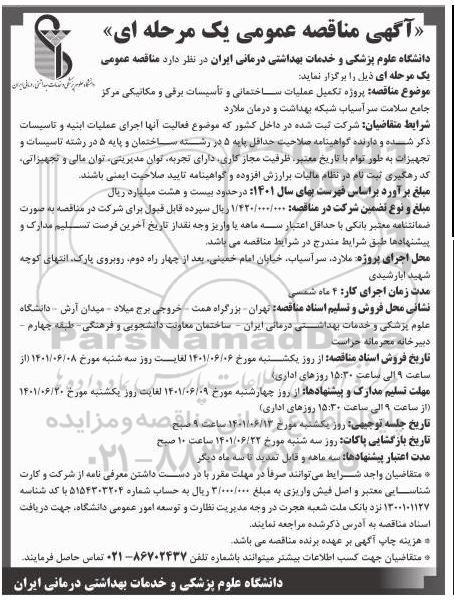 «آگهی مناقصه عمومی یک مرحله ای»
دانشگاه علوم پزشکی و خدمات بهداشتی درمانی ایران
دانشگاه علوم پزشکی و خدمات بهداشتی درمانی ایران در نظر دارد مناقصه عمومی
یک مرحله ای ذیل را برگزار نماید:
موضوع مناقصه: پروژه تکمیل عملیات ساختمانی و تأسیسات برقی و مکانیکی مرکز
جامع سلامت سرآسیاب شبکه بهداشت و درمان ملارد
شرایط متقاضیان: شرکت ثبت شده در داخل کشور که موضوع فعالیت آنها اجرای عملیات ابنیه و تاسیسات
ذکر شده و دارنده گواهینامه صلاحیت حداقل پایه ۵ در رشته ساختمان و پایه ۵ در رشته تاسیسات و
تجهیزات به طور توام با تاریخ معتبر، ظرفیت مجاز کاری، دارای تجربه، توان مدیریتی، توان مالی و تجهیزاتی،
کد رهگیری ثبت نام در نظام مالیات برارزش افزوده و گواهینامه تایید صلاحیت ایمنی باشند.
مبلغ برآورد براساس فهرست بهای سال ۱۴۰۱: درحدود بیست و هشت میلیارد ریال
مبلغ و نوع تضمین شرکت در مناقصه: ۱/۴۲۰/۰۰۰/۰۰۰ ریال سپرده قابل قبول برای شرکت در مناقصه به صورت
ضمانتنامه معتبر بانکی با حداقل اعتبار سه ماهه یا واریز وجه نقداز تاریخ آخرین فرصت تسلیم مدارک و
پیشنهادها طبق شرایط مندرج در شرایط مناقصه می باشد.
محل اجرای پروژه: ملارد، سرآسیاب، خیابان امام خمینی، بعد از چهار راه دوم، روبروی پارک، انتهای کوچه
شهید ابارشیدی
مدت زمان اجرای کار: ۴ ماه شمسی
نشانی محل فروش و تسلیم اسناد مناقصه: تهران- بزرگراه همت - خروجی برج میلاد - میدان آرش - دانشگاه
علوم پزشکی و خدمات بهداشتی درمانی ایران - ساختمان معاونت دانشجویی و فرهنگی - طبقه چهارم -
دبیرخانه محرمانه حراست
تاریخ فروش اسناد مناقصه: از روز یکشنبه مورخ ۱۴۰۱/۰۶/۰۶ لغایت روز سه شنبه مورخ ۱۴۰۱/۰۶/۰۸ (از
ساعت ۹ الی ساعت ۱۵:۳۰ روزهای اداری)
مهلت تسلیم مدارک و پیشنهادها: از روز چهارشنبه مورخ ۱۴۰۱/۰۶/۰۹ لغایت روز یکشنبه مورخ ۱۴۰۱/۰۶/۲۰
(از ساعت ۹ الی ساعت ۱۵:۳۰ روزهای اداری)
تاریخ جلسه توجیهی: روز یکشنبه مورخ ۱۴۰۱/۰۶/۱۳ ساعت ۹ صبح
تاریخ بازگشایی پاکات: روز سه شنبه مورخ ۱۴۰۱/۰۶/۲۲ ساعت ۱۰ صبح
مدت اعتبار پیشنهادها: سه ماهه و قابل تمدید تا سه ماه دیگر
* متقاضیان واجد شرایط می‌توانند صرفاً در مهلت مقرر با در دست داشتن معرفی نامه از شرکت و کارت
شناسایی معتبر و اصل فیش واریزی به مبلغ ۳/۰۰۰/۰۰۰ ریال به حساب شماره ۵۱۵۴۳۰۳۲۰۴ با کد شناسه
۱۳۰۰۱۰۱۱۲۷ نزد بانک ملت شعبه هجرت در وجه مدیریت نظارت و توسعه امور عمومی دانشگاه، جهت دریافت
اسناد مناقصه به آدرس ذکرشده مراجعه نمایند.
* هزینه چاپ آگهی بر عهده برنده مناقصه می باشد.
* متقاضیان جهت کسب اطلاعات بیشتر میتوانند باشماره تلفن ۸۶۷۰۲۴۳۷-۰۲۱ تماس حاصل فرمایند.
دانشگاه علوم پزشکی و خدمات بهداشتی درمانی ایران
ParsNamadData